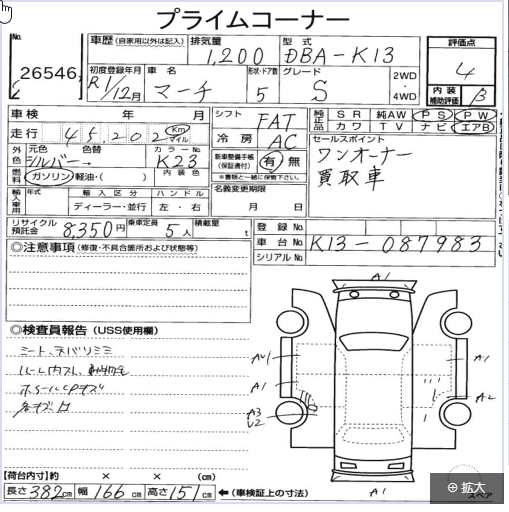 プライムコーナー
No. 26546
車歴 (自家用以外は記入) 排気量 1,200 型式 DBA-K13 評価点 4
初度登録年月 R1/12月 車名 マーチ 形状・ドア数 5 グレード S 2WD・4WD 内装補助評価 B
車検 年 月 シフト FAT 純正品 SR 純AW PS PW
カワ TV ナビ エアB
走行 45202 Km マイル 冷房 AC セールスポイント
外色 元色 シルバー→ 色替 カラーNo. K23 新車整備手帳(保証書付) 有 無 ワンオーナー
※書類と一緒に保管下さい 買取車
燃料 ガソリン・軽油・( ) 内装色 名義変更期限
輸入車用 年式 輸入区分 ハンドル 月 日
ディーラー・並行 左・右
リサイクル預託金 8,350円 乗車定員 5人 積載量 t 登録No.
◎注意事項 (修復・不具合箇所および状態等) 車台No. K13-087983
シリアルNo.
◎検査員報告 (USS使用欄)
A1
A1
A1
A2
A3
A1
【荷台内寸】約 × × (cm)
長さ 382cm 幅 166cm 高さ 151cm ←(車検証上の寸法)
スペア
拡大